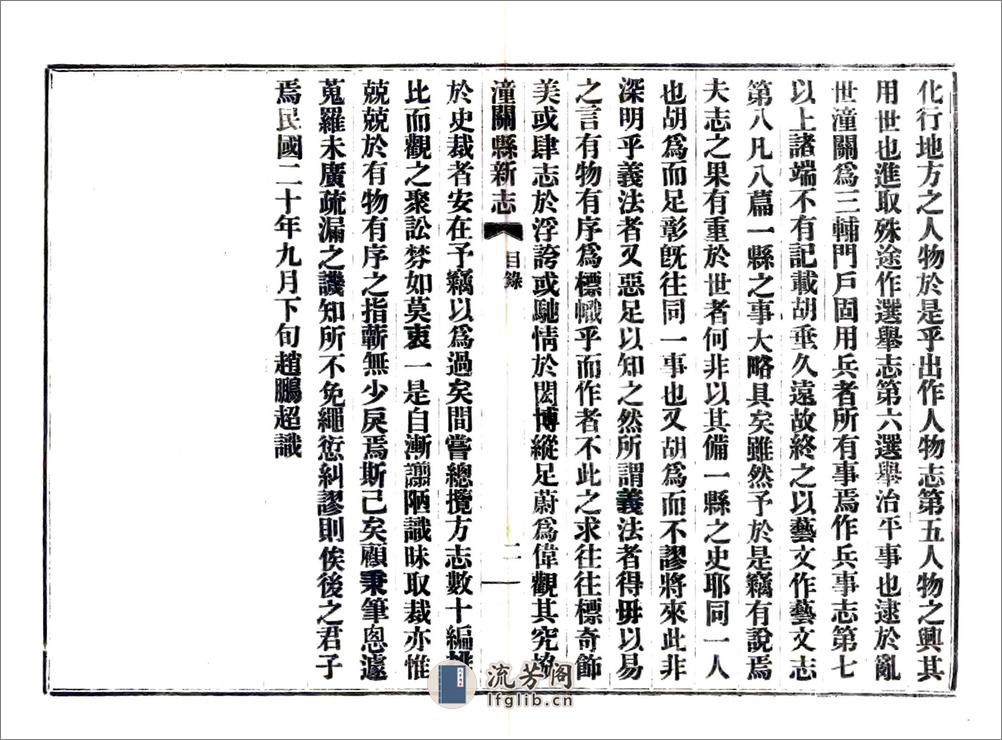 化行地方之人物於是乎出作人物志第五人物之興其
用世也進取殊途作選舉志第六選舉治平事也逮於亂
世潼關爲三輔門戶固用兵者所有事焉作兵事志第七
以上諸端不有記載胡垂久遠故終之以藝文作藝文志
第八凡八篇一縣之事大略具矣雖然予於是竊有說焉
夫志之果有重於世者何非以其備一縣之史耶同一人
也胡爲而足彰旣往同一事也又胡爲而不謬將來此非
深明乎義法者又惡足以知之然所謂義法者得毋以易
之言有物有序爲標幟乎而作者不此之求往往標奇飾
美或肆志於浮誇或馳情於閎博縱足蔚爲偉觀其究協
潼關縣新志 目錄 二
於史裁者安在予竊以爲過矣間嘗總攬方志數十編排
比而觀之聚訟棼如莫衷一是自漸譾陋識昧取裁亦惟
兢兢於有物有序之指蘄無少戾焉斯已矣顧秉筆悤遽
蒐羅未廣疏漏之譏知所不免繩愆糾謬則俟後之君子
焉民國二十年九月下旬趙鵬超識
流芳阁
lfglib.cn